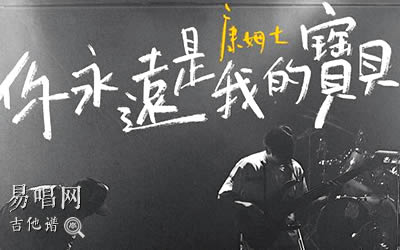 康姆士
你永遠是我的寶貝
易唱网
吉他谱